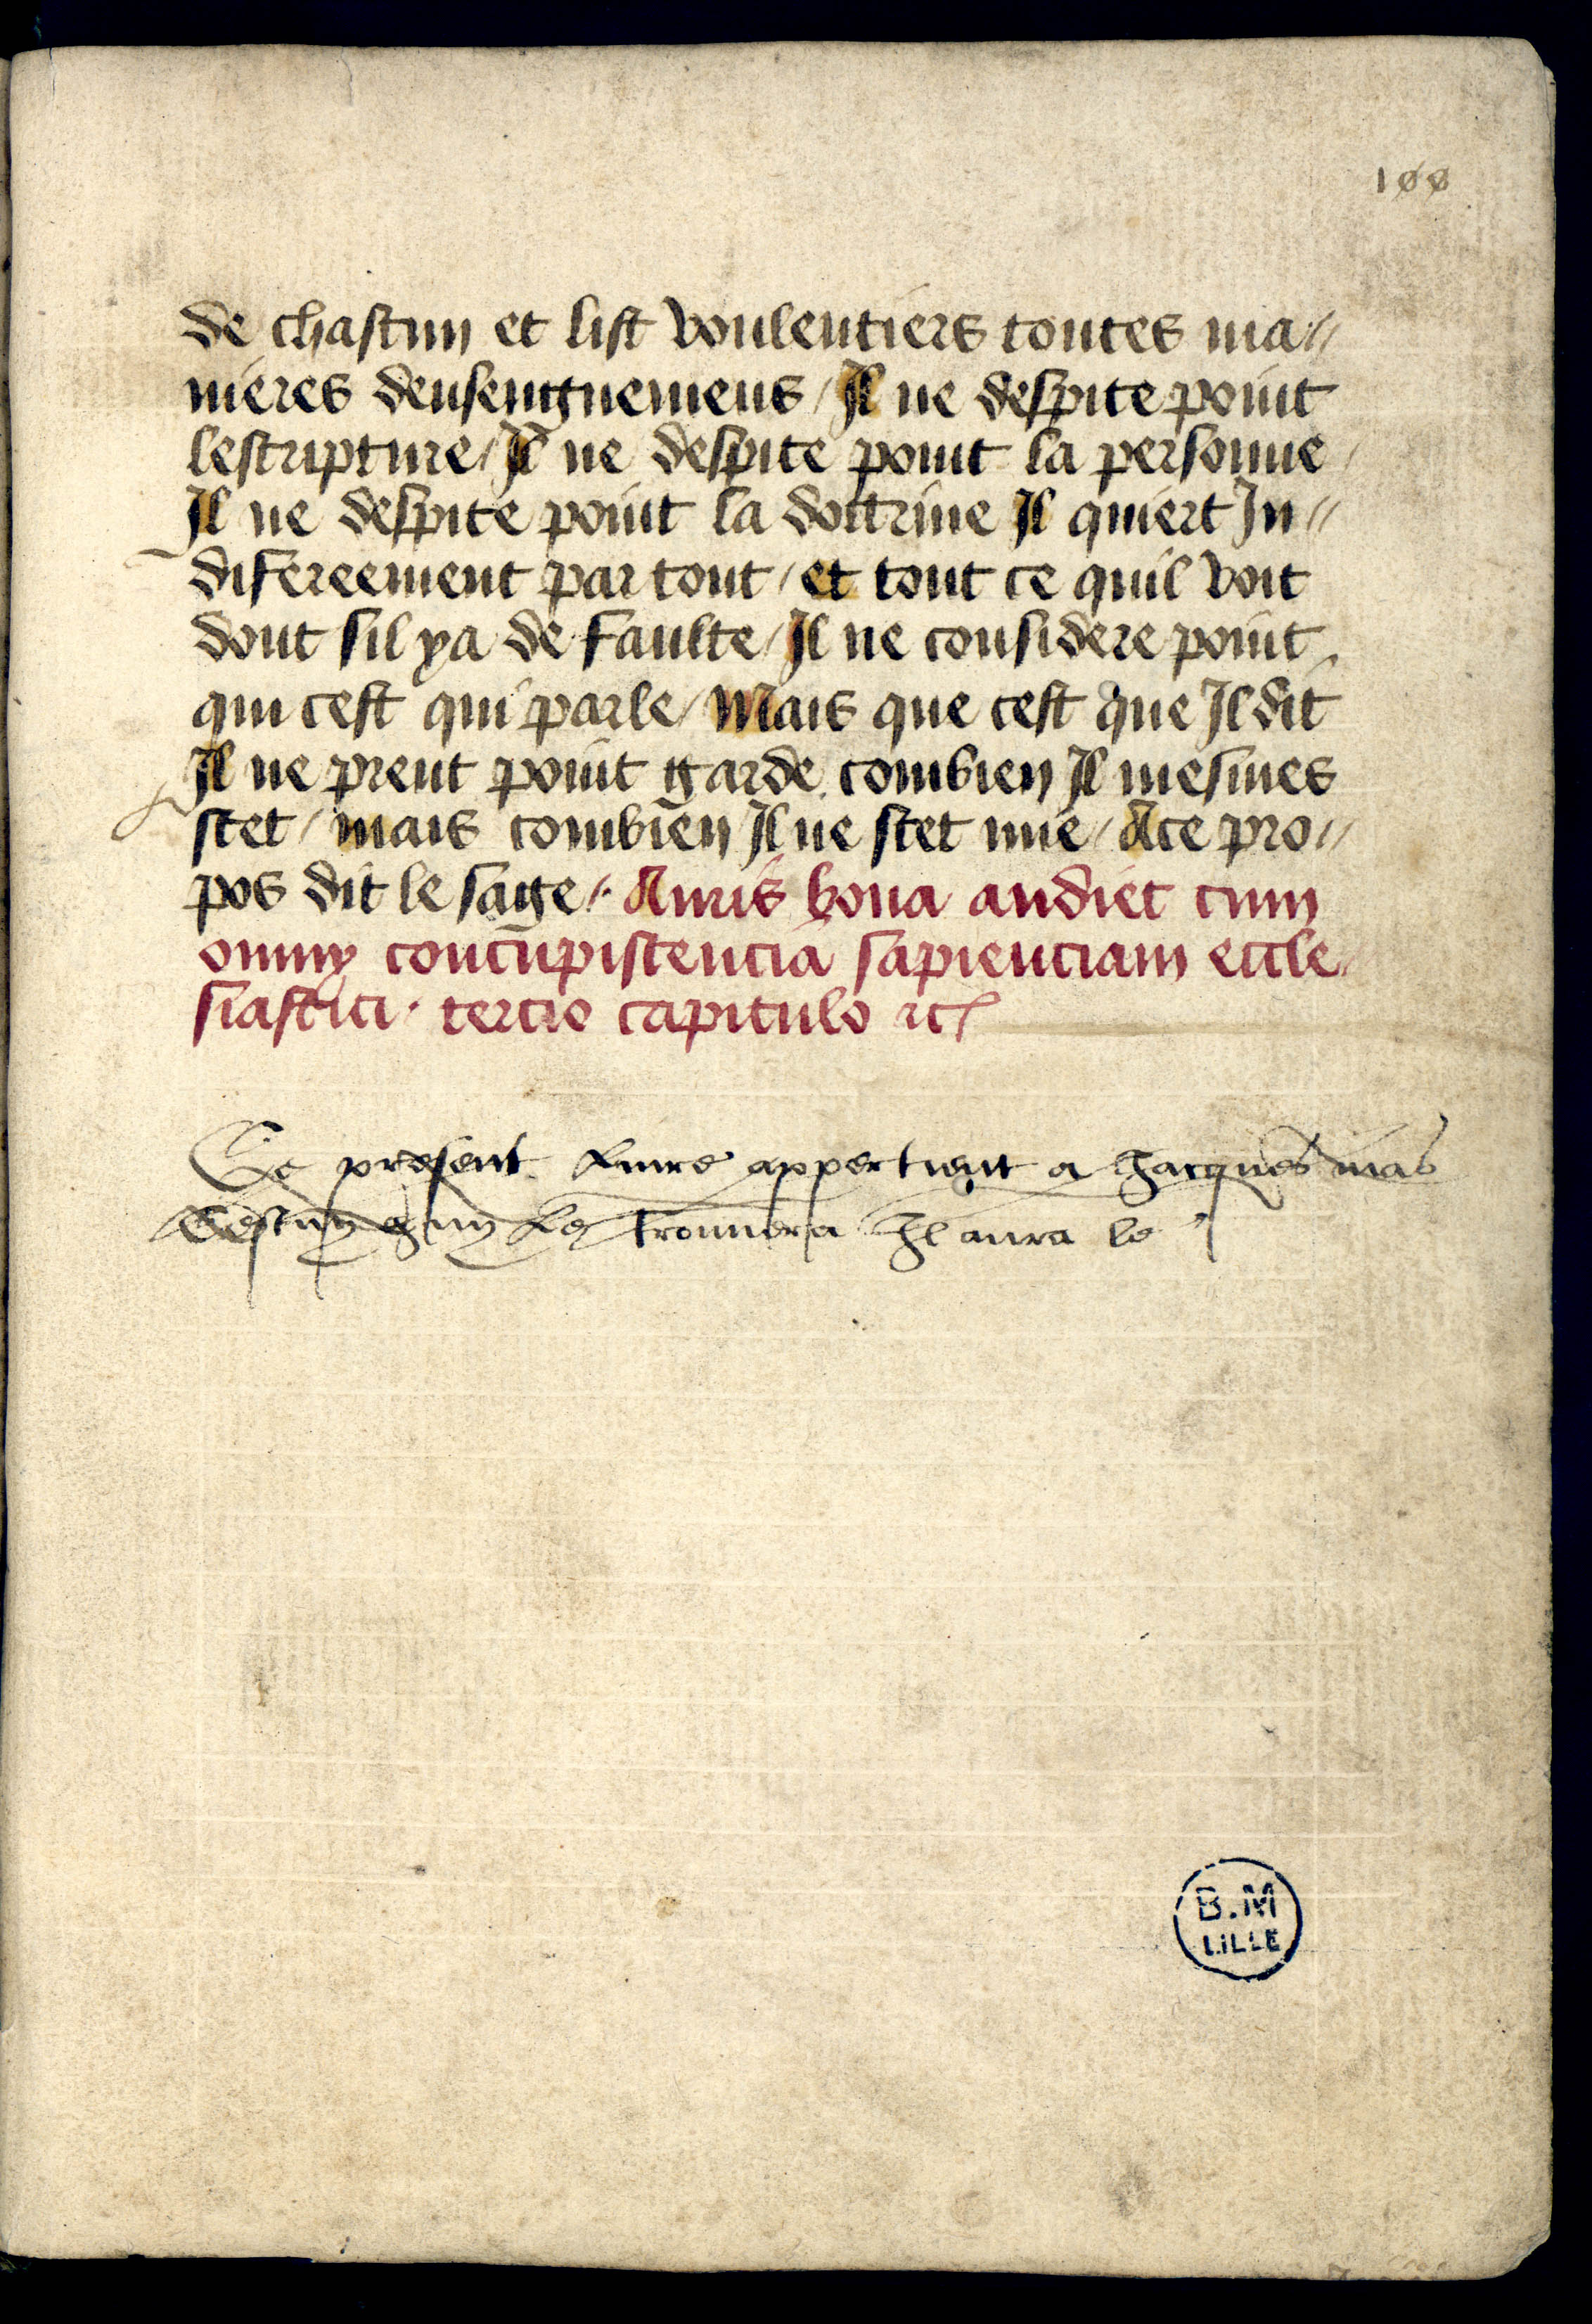 100
de chascun et list voulentiers toutes ma//
nieres denseignemens / Il ne despite point
lescripture / Il ne despite point la personne /
Il ne despite point la doctrine Il quiert In//
difereement par tout / et tout ce quil voit
dont sil ya de faulte / Il ne considere point
qui cest qui parle / Mais que cest que Il dit
Il ne prent point garde combien Il mesmes
scet / mais combien Il ne scet mie / Ace pro//
pos dit le sage /. Auris bona audiet cum
omny concupiscencia sapienciam eccle/
siastici . tercio capitulo etc
Ce present liure appertient a Jacques mas
Cestuy quy le trouuera Il aura le
B.M
LILLE